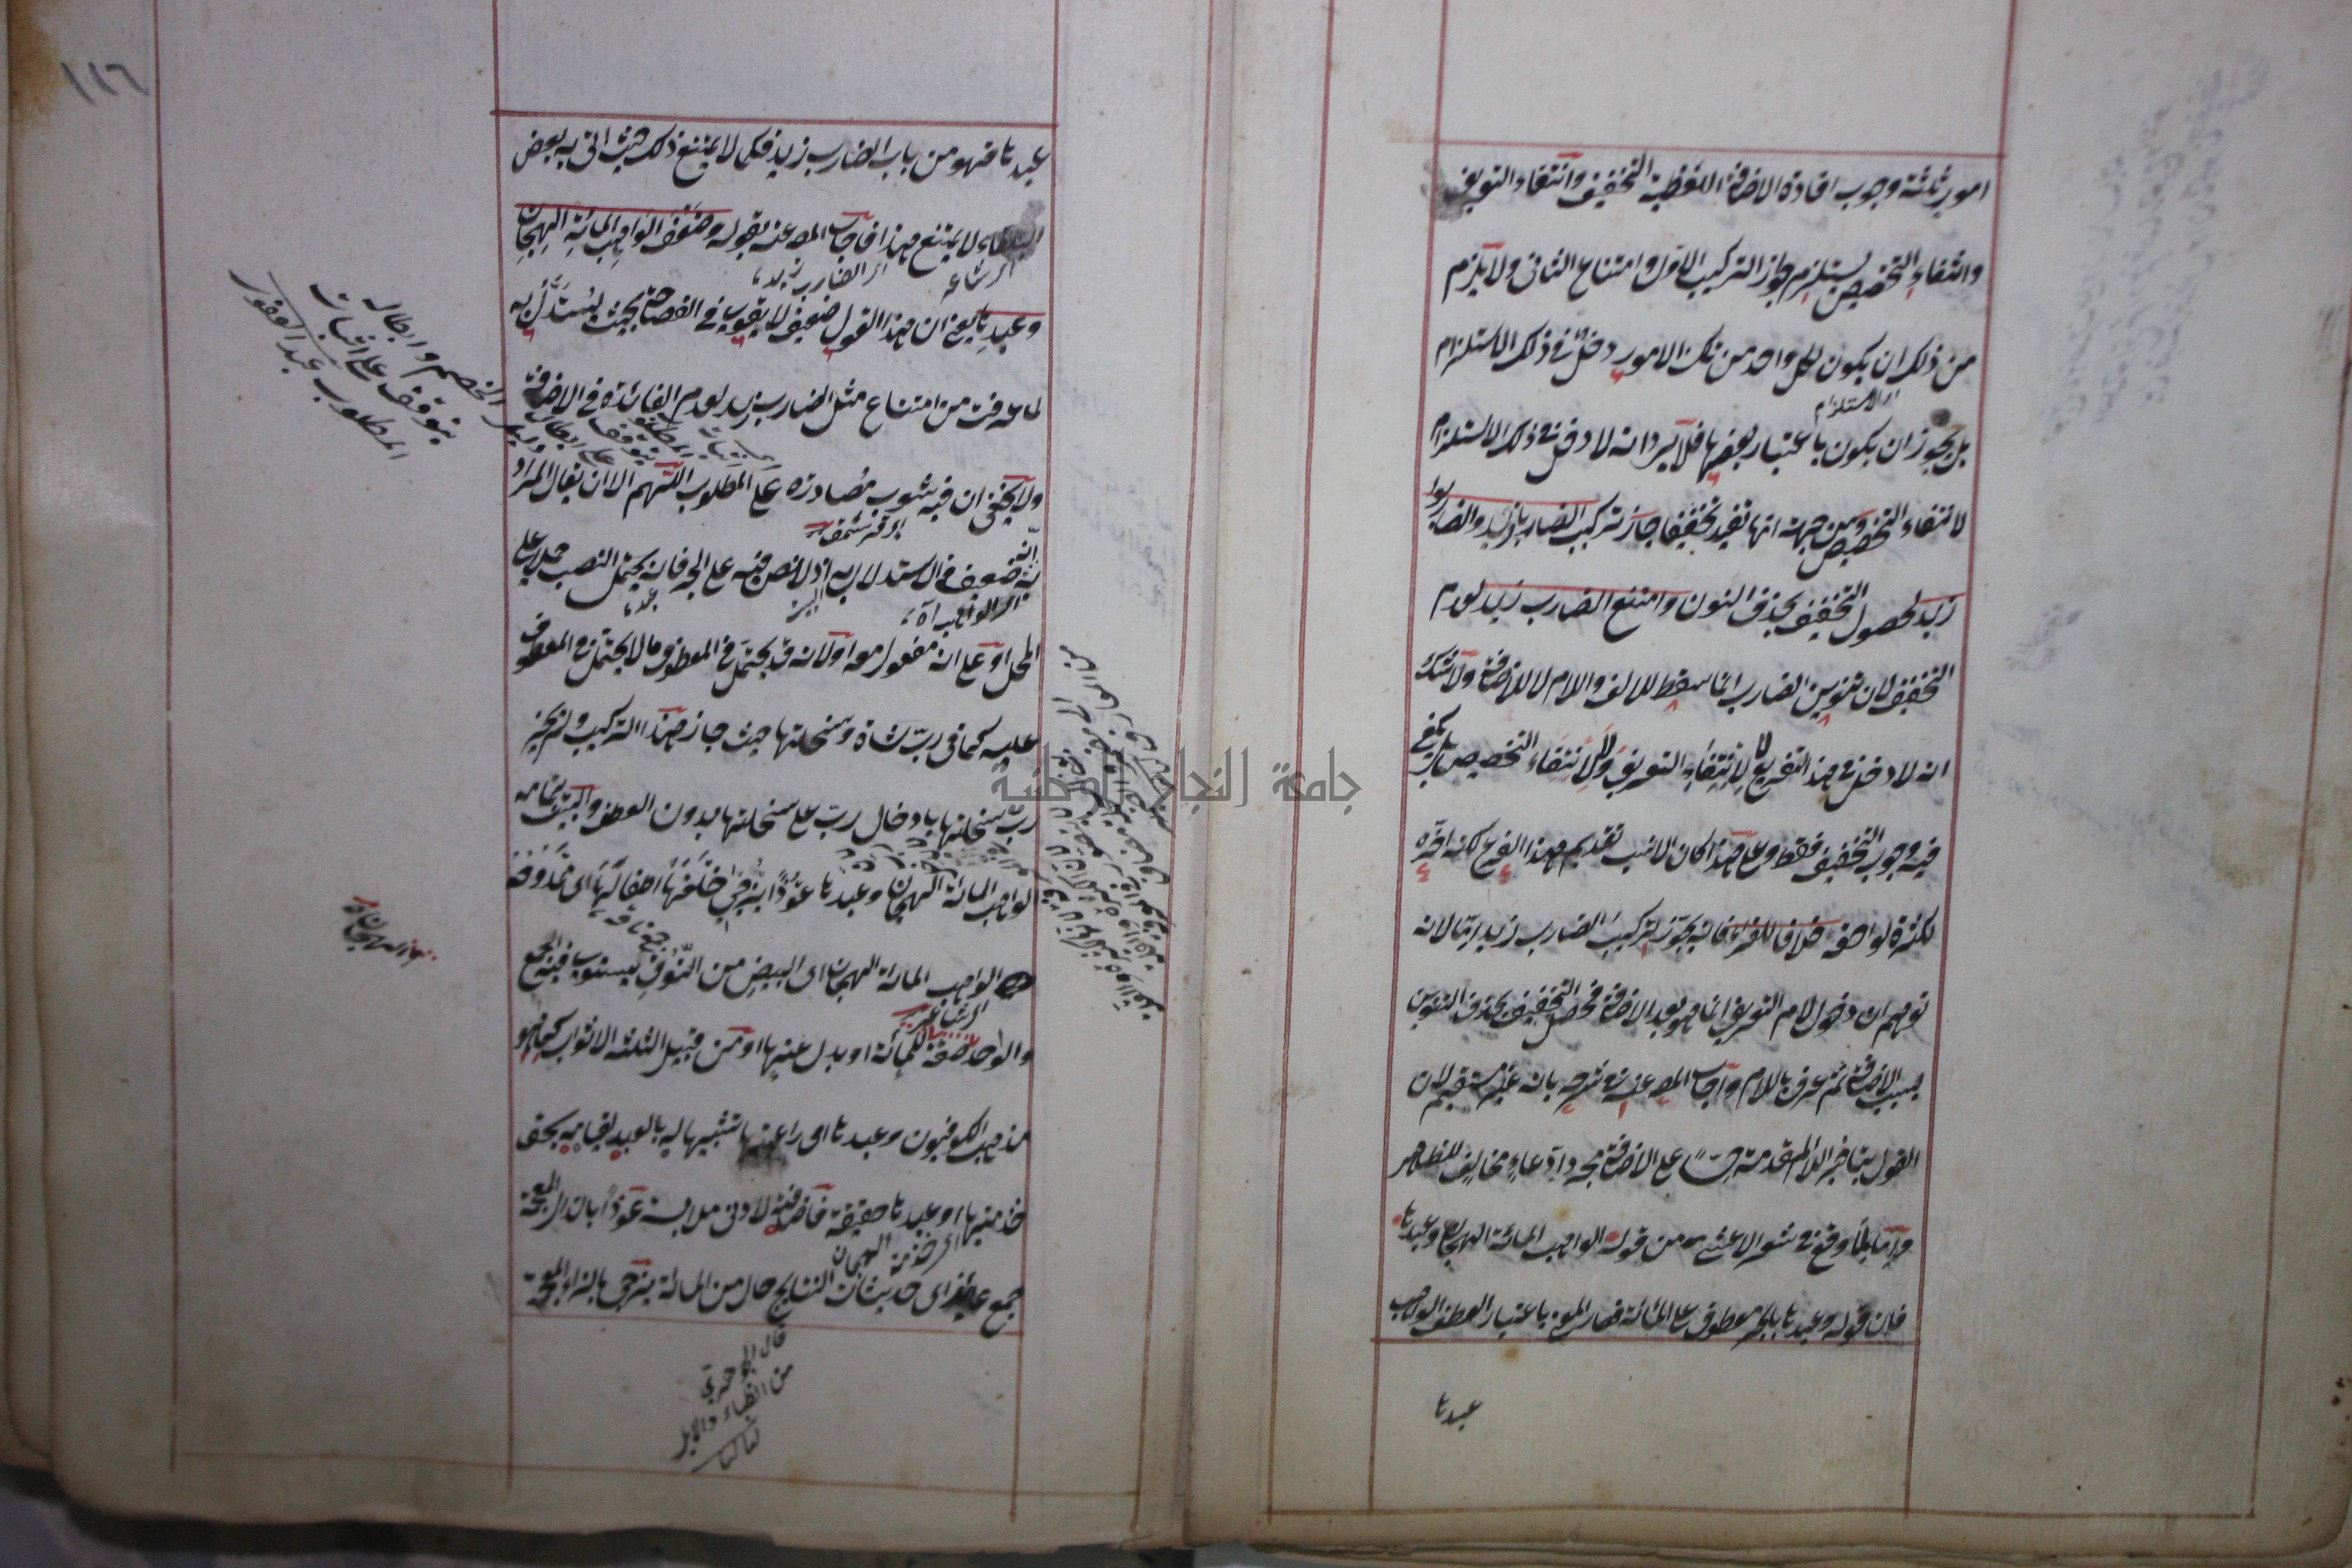 امور ثلثة وجوب افادة الاضافة اللفظية التخفيف وانتفاء التعريف
وانتفاء التخصيص يستلزم جواز التركيب الاول وامتناع الثانى ولا يلزم
من ذلك ان يكون لكل واحد من تلك الامور دخل فى ذلك الاستلزام
اى الاستلزام
بل يجوز ان يكون باعتبار بعضها فلا يرد انه لا دخل فى ذلك الاستلزام
لانتفاء التخصيص ومن جهة انها تفيد تخفيفا جاز تركيب الضاربا زيد والضاربوا
زيد لحصول التخفيف بحذف النون وامتنع الضارب زيد لعدم
التخفيف لان تنوين الضارب انما سقط للالف واللام لا للاضافة ولا شك
انه لا دخل فى هذا التفريع لا لانتفاء التعريف ولا لانتفاء التخصيص بل يكفى
فيه وجوب التخفيف فقط وعلى هذا كان الانسب تقديم هذا الفرع لكنه اخره
لكثرة لواحقه خلافا للفراء فانه يجوز تركيب الضارب زيد اما لانه
توهم ان دخول لام التعريف انما هو بعد الاضافة فحصل التخفيف بحذف التنوين
بسبب الاضافة ثم عرف باللام واجاب المص عنه فى شرحه بانه غير مستقيم لان
القول بتاخير اللام المتقدمة حسا على الاضافة مجرد ادعاء مخالف للظاهر
واما لما وقع فى شعر الاعشى من قوله الواهب المائة الهجان وعبدها
فان قوله وعبدها بالجر معطوف على المائة فصار المعنى باعتبار العطف الواهب
عبدها
١١٦
عبدها فهو من باب الضارب زيد فكما لا يمتنع ذلك حيث اتى به بعض
البلغاء لا يمتنع هذا فاجاب المص عنه بقوله وضعف الواهب المائة الهجان
اى الضارب زيد
وعبدها يعنى ان هذا القول ضعيف لا يقوى فى الفصاحة بحيث يستدل به
لما عرفت من امتناع مثل الضارب زيد لعدم الفائدة فى الاضافة
ولا يخفى ان فيه شوب مصادرة على المطلوب اللهم الا ان يقال المراد
انه ضعيف فى الاستدلال به اذ لا نص فيه على الجر فانه يحتمل النصب حملا على
المحل او على انه مفعول معه او لانه قد يحتمل فى المعطوف ما لا يحتمل فى المعطوف
عليه كما فى رب شاة وسخلتها حيث جاز هذا التركيب ولم يجز
رب سخلتها بادخال رب على سخلتها بدون العطف والبيت بتمامه
الواهب المائة الهجان وعبدها عوذا يزجى خلفها اطفالها اى ممدوحه
الواهب المائة الهجان اى البيض من النوق يستوى فيه الجمع
والواحد صفة للمائة او بدل عنها او من قبيل الثلثة الاثواب كما هو
مذهب الكوفيون وعبدها اى راعيها تشبيها له بالعبد لقيامه بحق
خدمتها او عبدها حقيقة فاضافته لادنى ملابسة عوذا بالذال المعجمة
جمع عائذ اى حديثات النتايج حال من المائة يزجى بالزاء المعجمة
الخصم وابطاله
يتوقف على اثبات
المطلوب عبد الغفور
قال الجوهرى
من الظباء والابل